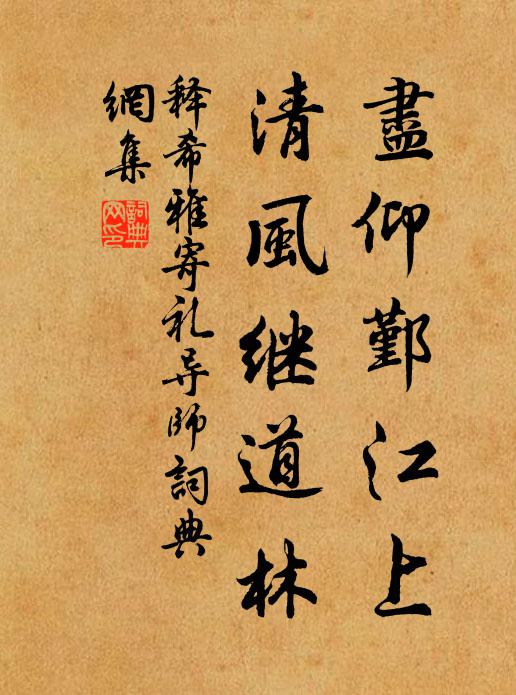 盡仰鄞江上
清風继道林
释希雅寄礼导師詞典
網集
詞典
网印